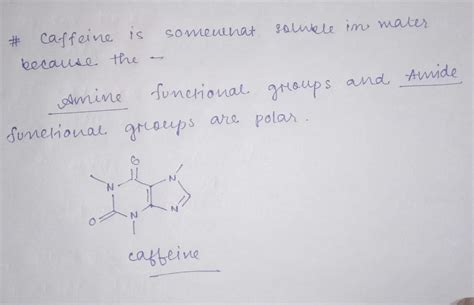 # Caffeine is somewhat soluble in water
because the —
Amine functional groups and Amide
functional groups are polar.
O
N
N
O
N
N
caffeine